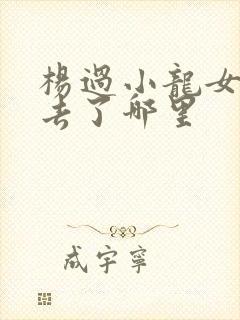 楊過小龍女
去了哪里
成宇寧